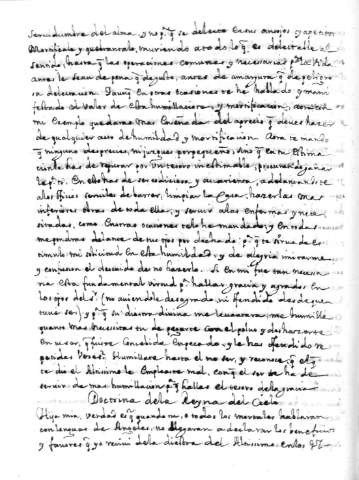 servidumbre del alma y no pª q̃ se deleite en sus antojos y apetitos
Mortificale y quebrantale, muriendo a todo lo q̃ es delectable al
sentido, hasta q̃ las operaciones comunes y necessarias pª la Vida
antes le sean de pena q̃ de gusto, antes de amargura q̃ de peligro
sa delectacion. Y aunq̃ en otras ocasiones te he hablado y mani
festado el valor de esta humillacion, y mortificacion, con
mi exemplo quedaras mas enseñada del aprecio q̃ deves hazer
de qualquier acto de humildad y mortificacion. Aora te mando
q̃ ninguno desprecies, ni juzgues por pequeño, sino q̃ en tu estima
cion le has de reputar por un tesoro inestimable, procurandolo ganar
pª ti. En esto has de ser codiciosa y avarienta, adelantandote
a los oficios serviles de barrer, limpiar la casa, hazer las mas
inferiores obras de toda ella, y servir a las enfermas y nece
sitadas, como en otras ocasiones te lo he mandado; y en todas
me pondras delante de tus ojos por dechado, pª q̃ te sirva de es
timulo mi solicitud en esta humildad, y de alegria imitarme
y confusion el descuido de no hazerlo. Si en mi fue tan necesa
ria esta fundamental virtud pª hallar gracia y agrado en
los ojos del Sʳ (no aviendole desagradado ni ofendido desde que
tuve ser) y pª q̃ su diestra divina me levantara, me humille
quanto mas necesitas tu de pegarte con el polvo y deshazerte
en tu ser, q̃ fuiste concebida en pecado, y le has ofendido re
petidas vezes. Humillate hasta el no ser, y reconoce q̃ el q̃
te dio el Altisimo le empleaste mal, con q̃ el ser te ha de
servir de mas humillacion pª q̃ halles el tesoro de la gracia
Doctrina de la Reyna del Cielo
Hija mia, verdad es q̃ quando a todos los mortales hablaran
con lenguas de Angeles, no llegaran a declarar los beneficios
y favores q̃ yo recivi de la diestra del Altissimo en los